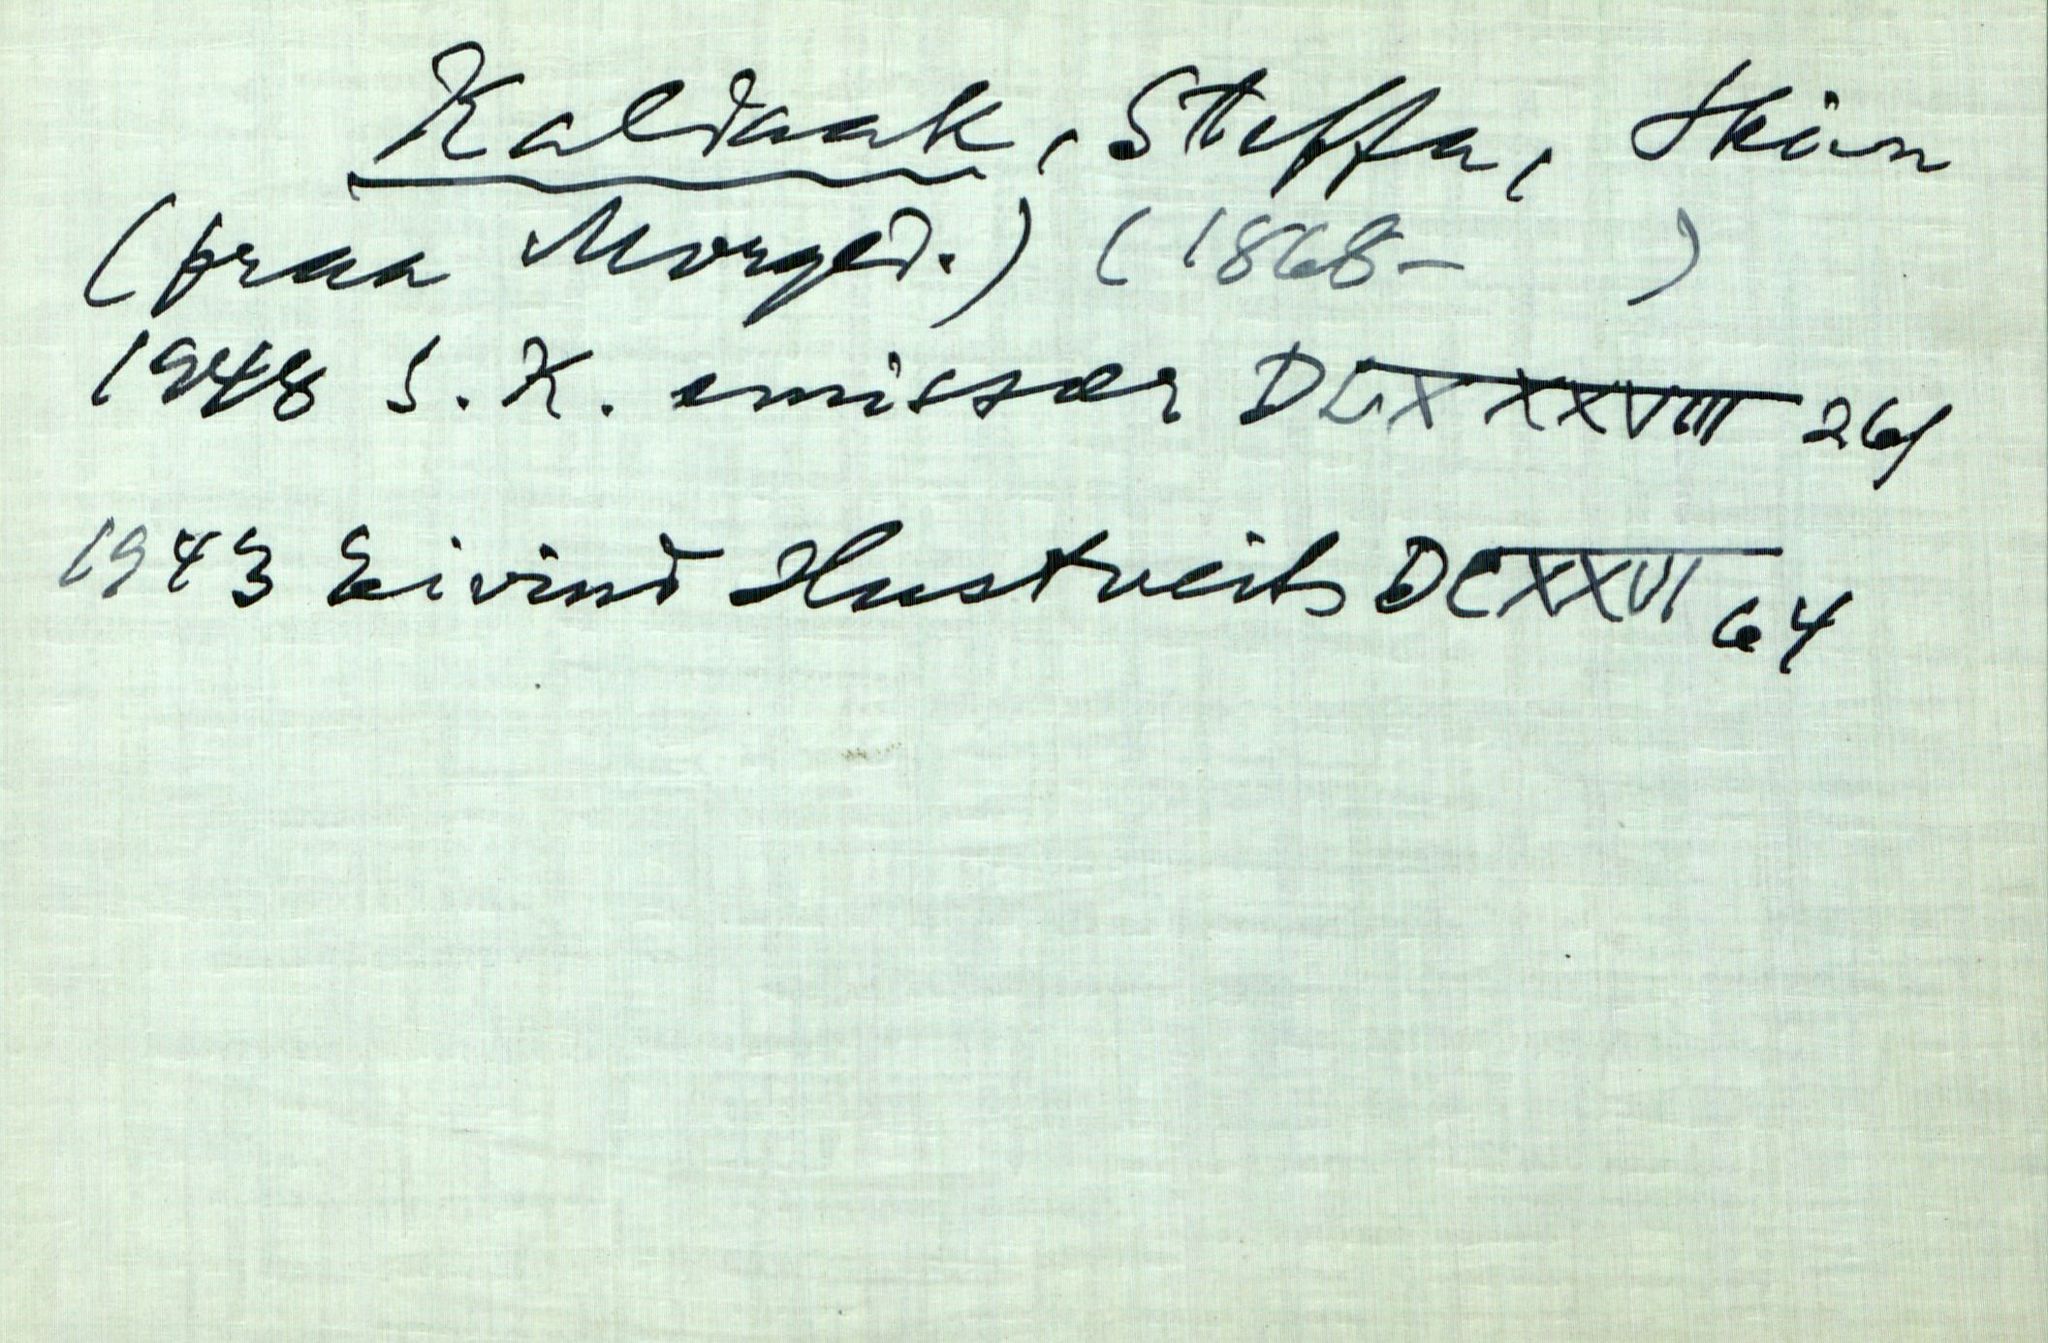 Kaldaak, Steffa, Skien
(fraa Morged.) (1868- )
1948 S. K. emissær DLXXXXVIII 261
1943 Eivind Hustveits DCXXVI 64